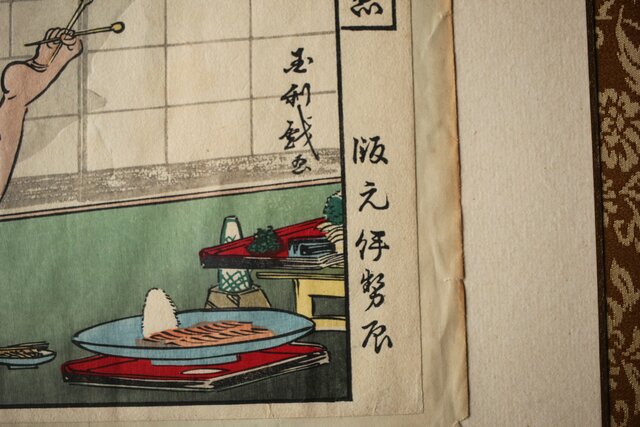 玉利戯画
版元伊勢辰